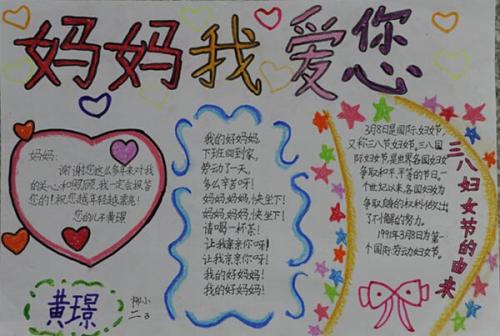 妈妈我爱您
妈妈:
谢谢您这么多年来对我
的关心和照顾,我一定会报答
您的!祝您越年轻越漂亮!
您的儿子黄璟
黄璟
柳小
二3
我的好妈妈,
下班回到家,
劳动了一天,
多么辛苦呀!
妈妈妈妈快坐下!
妈妈,妈妈,快坐下!
请喝一杯茶!
让我亲亲你呀!
让我亲亲你呀!
我的好妈妈!
我的好妈妈!
3月8日是国际妇女节,
又称三八节妇女节,三八国
际妇女节,是世界各国妇女
争取和平、平等的节日,一
个世纪以来,各国妇女为
争取
的权利做出
了不懈的努力。
1991年3月8日为第一
个国际劳动妇女节。
三八妇女节的由来